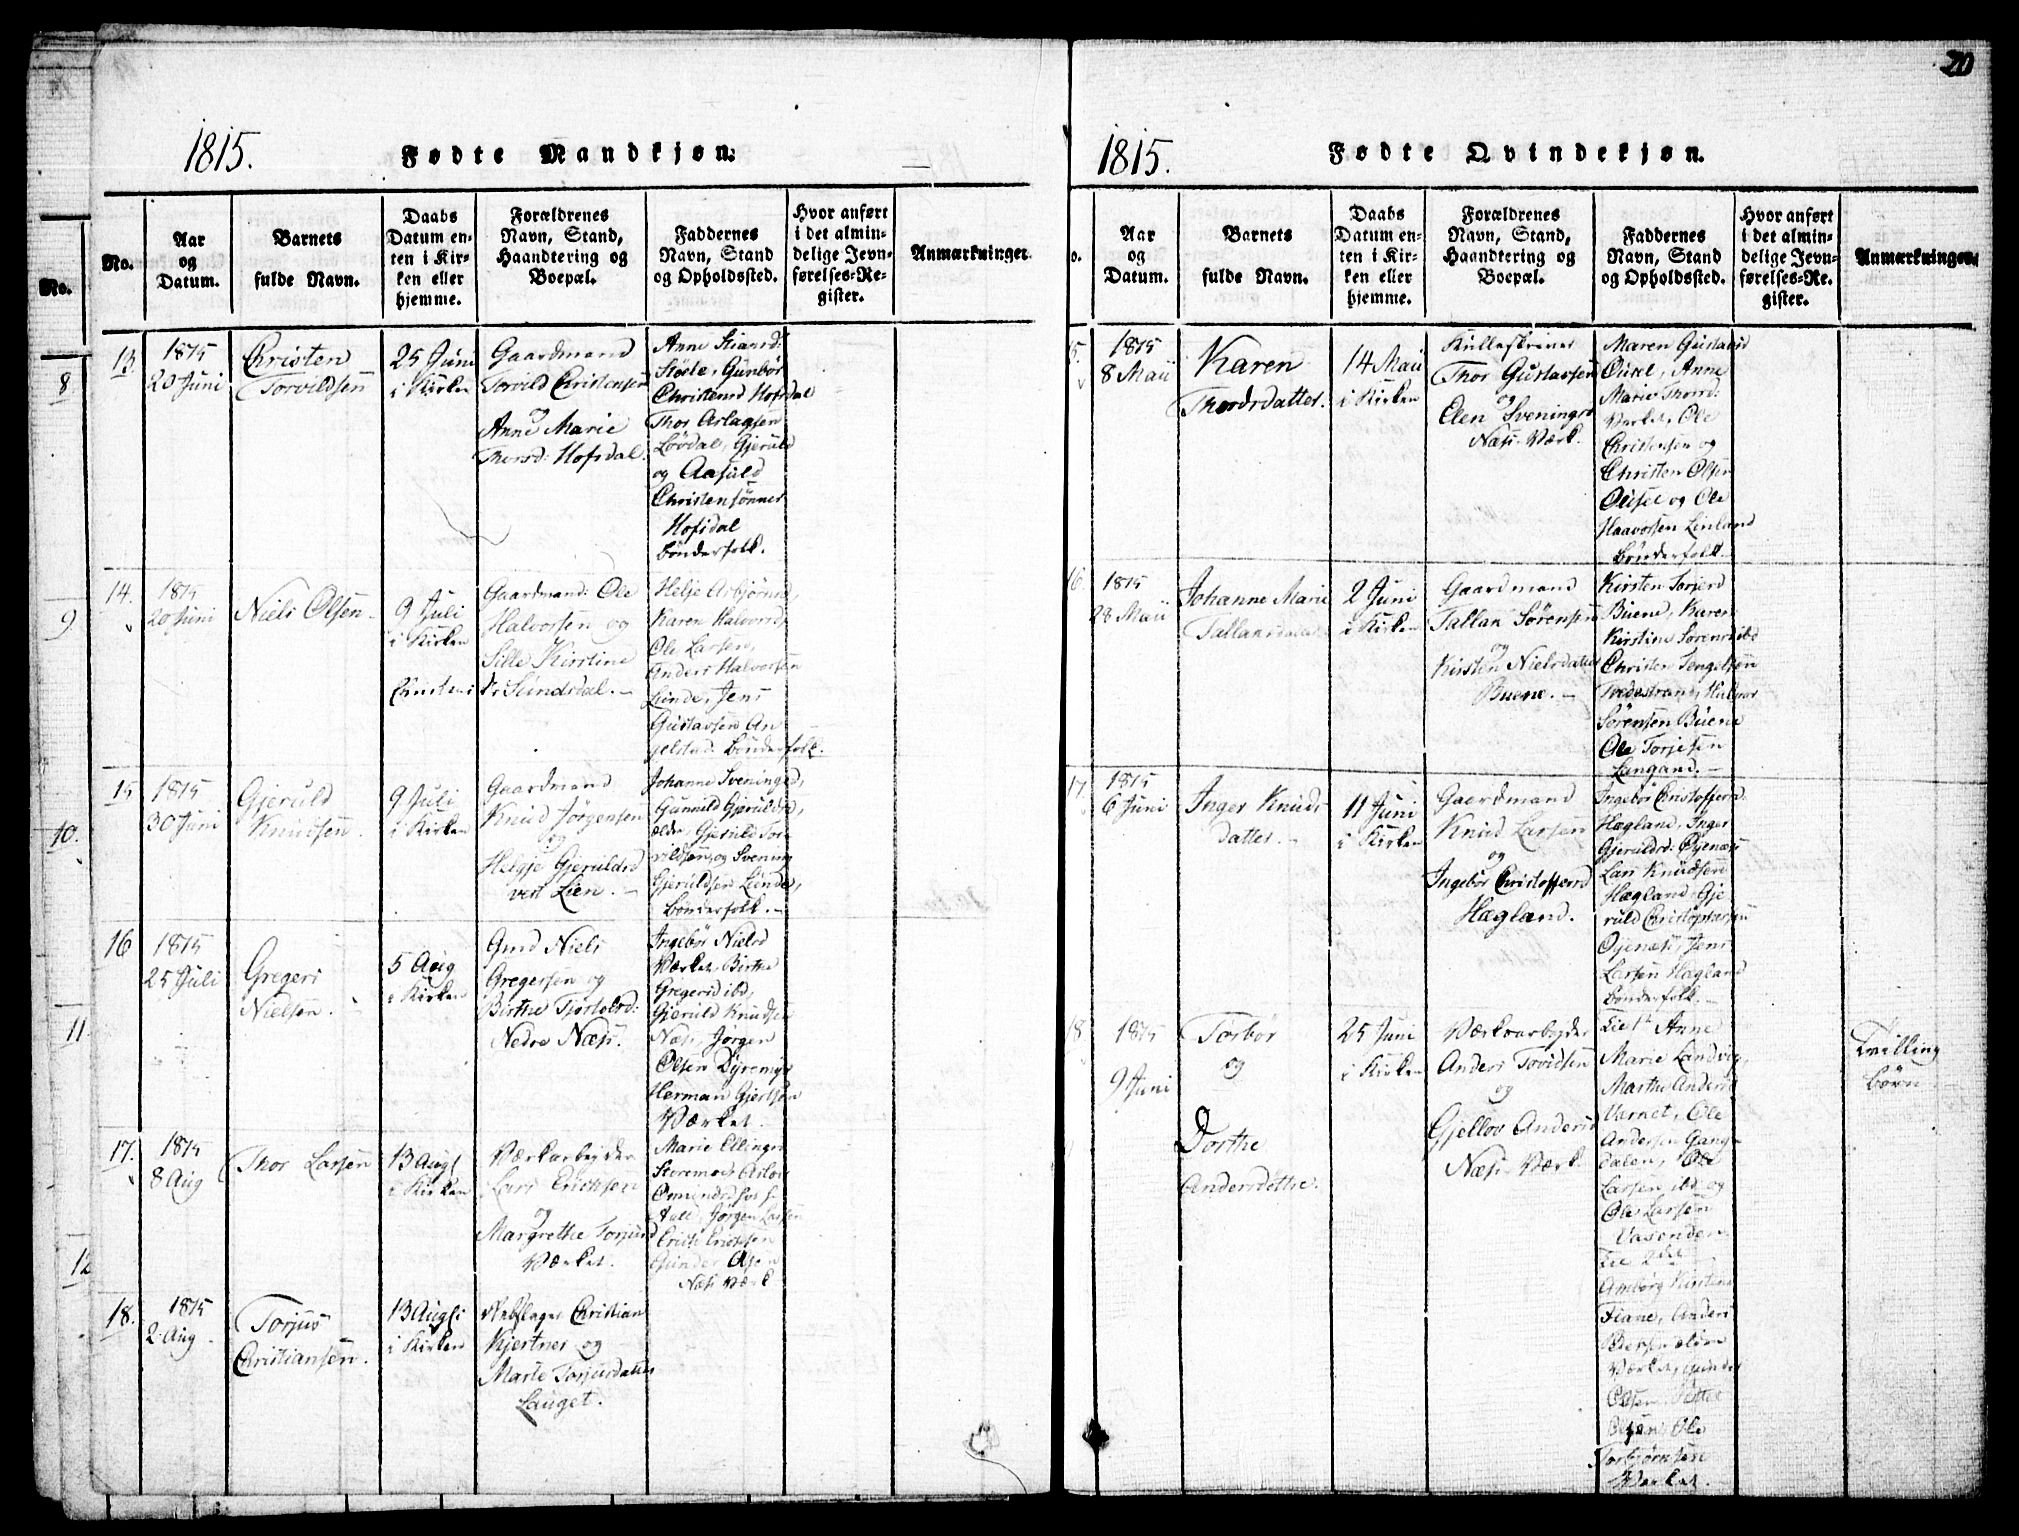 20
1815.
Fødte Mandkjøn.
No.
Aar
og
Datum.
Barnets
fulde Navn.
Daabs
Datum en-
ten i Kir-
ken eller
hjemme.
Forældrenes
Navn, Stand,
Haandtering og
Boepæl.
Faddernes
Navn, Stand
og Opholdssted.
Hvor anført
i det almin-
delige Jevn-
førelses-Re-
gister.
Anmærkninger.
No.
8
9.
10.
11.
12
13.
1815
20 Juni
Christen
Torvildsen
25 Juni
i Kirken
Gaardmand
Torvild Christensen
og
Anne Marie
Thorsd: Hofsdal.
Anne
Støele, Gunbor
Christensd Hofsdal
Thor Aslagsen
Løvdal, Gjeruld
og Aasuld
Christensønner
Hofsdal
bønderfolk.
14.
1815
20 Juni
Niels Olsen.
9 Juli
i Kirken
Christens
Gaardmand: Ole
Halvorsen og
Sille Kirstine
Sundsdal.
Helje Asbjørnsd,
Karen Halvorsd,
Ole Larsen,
Anders Halvorsen
Lunde, Jens
Gustavsen An
gelstad. bønderfolk.
15
1815
30 Juni
Gjeruld
Knudsen.
9 Juli
i Kirken
Gaardmand
Knud Jørgensen
og
Helgje Gjeruldsd
vest Lien.
Johanne Sveningsd,
Gunnild Gjeruldsd,
ældre, Gjeruld Tor-
vildsen, og Svening
Gjeruldsen Lunde,
bønderfolk.
16
1815
25 Juli
Gregers
Nielsen.
5 Aug
i Kirken
Gmd Niels
Gregersen og
Birthe Tjostolsd:
Nedre Næss.
Ingebør Nielsd
Værket, Birthe
Gregersd ibd,
Gjeruld Knudsen
Næs, Jørgen
Olsen Dyremyr
Herman Gjertsen
Værket.
17.
1815
8 Aug
Thor Larsen
13 Augs
i Kirken
Værkarbeyder
Lars Ericksen
og
Margrethe Torjusd
Værket.
Marie Ellingsd
Aslou
Omundsd hos
Aall, Jørgen Larsen
Erich Erichsen
Gunder Olsen
Næs Værk
18.
1815
2. Aug.
Torjus
Christiansen.
13 Augs
i Kirken
Christian
Kjertner og
Marte Torjusdatter
Lauget.
1815.
Fødte Qvindekjøn.
o.
Aar
og
Datum.
Barnets
fulde Navn.
Daabs
Datum en-
ten i Kir-
ken eller
hjemme.
Forældrenes
Navn, Stand,
Haandtering og
Boepæl.
Faddernes
Navn, Stand
og Opholdssted.
Hvor anført
i det almin-
delige Jevn-
førelses-Re-
gister.
Anmærkninger.
5.
1815
8 Maii
Karen
Thordsdatter.
14 Maii
i Kirken
Kulleskriver
Thor Gustavsen
og
Elen Sveningsd
Næs-Værk.
Maren Gustavsd
Anne
Marie Thorsd:
Værket, Ole
Christensen og
Christen Olsen
og Ole
Haavorsen Linland
bønderfolk.
16.
1815
28 Maii
Johanne Marie
Tallaksdatter
2 Juni
i Kirken
Gaardmand
Tallak Sørensen
og
Kirsten Nielsdatter
Buene.
Kirsten Torjersd
Buene, Karen
Kirstine Sørensd ibd
Christen Tengelsen
Tvedestrand, Halvor
Sørensen Buene
Ole Torjesen
Langand.
17
1815
6 Juni
Inger Knuds
datter.
11 Juni
i Kirken
Gaardmand
Knud Larsen
og
Ingebør Christoffersd
Hægland.
Ingebør Christoffersd.
Hægland, Inger
Gjeruldsd: Øjenæs
Lars Knudsen
Hægland, Gje
ruld Christophersen
Øjenæs, Jens
Larsen Hægland
bønderfolk.
18
1815
9 Juni
Torbør
og
Dorthe
Andersdøttre.
25 Juni
i Kirken
Værksarbeyder
Anders Tovidsen
og
Gjellov Andersd
Næs-Værk.
Anne
Marie Landvig,
Marthe Andersd
Varnet, Ole
Andersen Gang-
dalen, Ole
Larsen ibd og
Ole Larsen
Vasenden.
Amborg Kirstine
Fiane, Anders
Pedersen ældre
Værket, Gunder
Olsen
Olsen Ole
Torbjørnsen
Værket.
Tvilling
børn